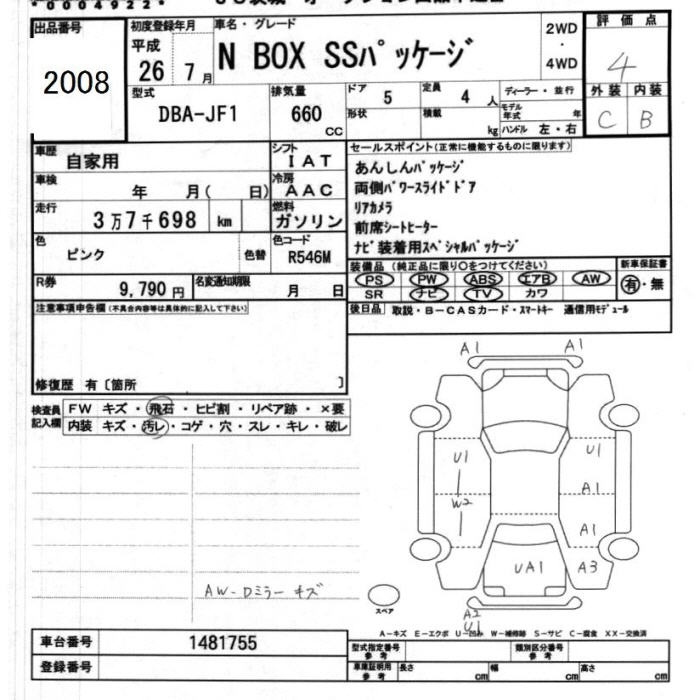 *0004922*
出品番号
2008
初度登録年月
平成
26年 7月
車名・グレード
N BOX SSパッケージ
2WD
・
4WD
評価点
4
外装 内装
C B
型式
DBA-JF1
排気量
660
CC
ドア
5
形状
定員
4 人
積載
kg
ディーラー・並行
モデル年式 年
ハンドル 左・右
車歴
自家用
シフト
IAT
車検
年 月( 日)
冷房
AAC
走行
3万7千698 km
燃料
ガソリン
色
ピンク
色替
色コード
R546M
R券
9,790円
名変通知期限
月 日
セールスポイント(正常に機能するものに限ります)
あんしんパッケージ
両側パワースライドドア
リアカメラ
前席シートヒーター
ナビ装着用スペシャルパッケージ
装備品(純正品に限り○をつけてください)
PS PW ABS エアB AW
SR ナビ TV カワ
新車保証書
有・無
後日品
取説・B-CASカード・スマートキー 通信用モデュール
注意事項申告欄(不具合内容等は具体的に記入して下さい)
修復歴 有〔箇所 〕
検査員記入欄
FW キズ・飛石・ヒビ割・リペア跡・×要
内装 キズ・汚レ・コゲ・穴・スレ・キレ・破レ
AW-Dミラー キズ
A1 A1
U1 U1
W2 A1
A1
UA1 A3
A2
U1
スペア
A-キズ E-エクボ U-凹み W-補修跡 S-サビ C-腐食 XX-交換済
車台番号
1481755
登録番号
型式指定番号
参考
類別区分番号
参考
車庫証明用
参考
長さ cm 幅 cm 高さ cm